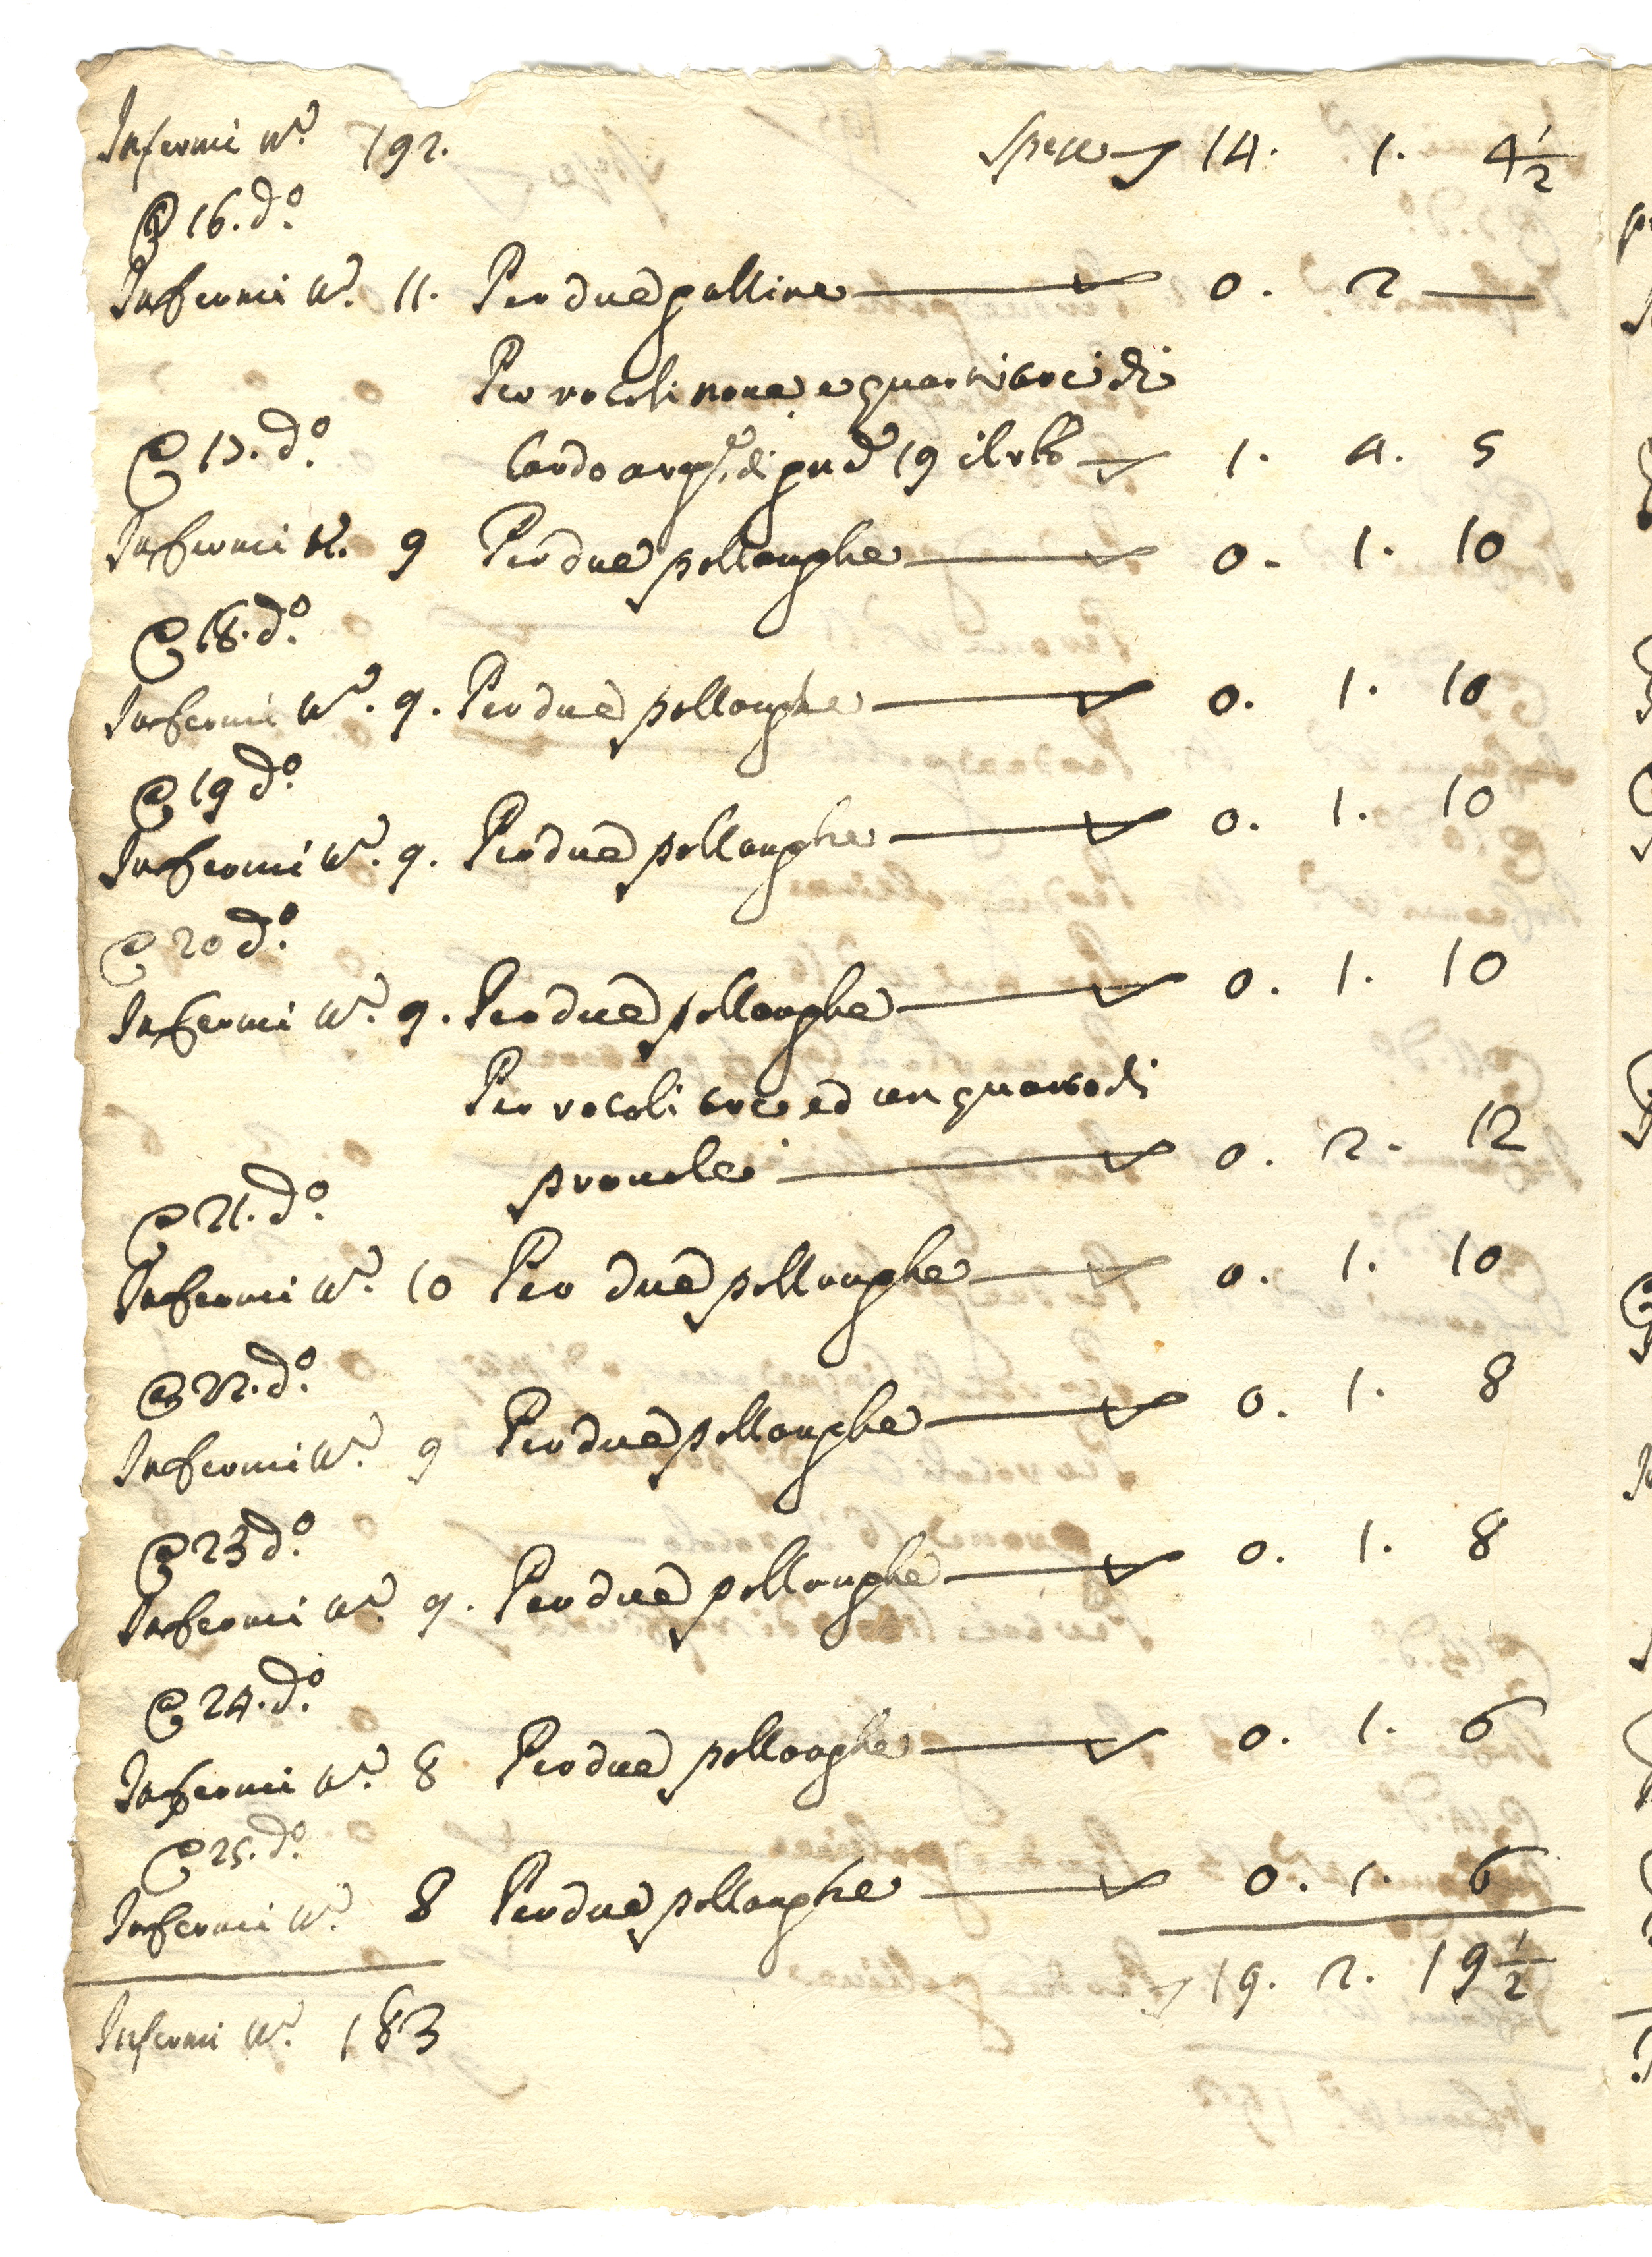 Infermi N.º 192. Spese 14. 1. 4 1/2
@ 16. d.º
Infermi N.º 11. Per due galline 0. 2 —
Per rotoli nove, e quarti tre di
@ 17. d.º lardo 19 il 1. 4. 5
Infermi N. 9 Per due pollanghe 0. 1. 10
@ 18. d.º
Infermi N.º 9. Per due pollanghe 0. 1. 10
@ 19 d.º
Infermi N.º 9. Per due pollanghe 0. 1. 10
@ 20 d.º
Infermi N.º 9. Per due pollanghe 0. 1. 10
Per rotoli tre ed un quarto di
provole 0. 2. 12
@ 21. d.º
Infermi N.º 10 Per due pollanghe 0. 1. 10
@ 22. d.º
Infermi N.º 9 Per due pollanghe 0. 1. 8
@ 23 d.º
Infermi N.º 9. Per due pollanghe 0. 1. 8
@ 24. d.º
Infermi N.º 8 Per due pollanghe 0. 1. 6
@ 25. d.º
Infermi N.º 8 Per due pollanghe 0. 1. 6
19. 2. 19 1/2
Infermi N.º 183